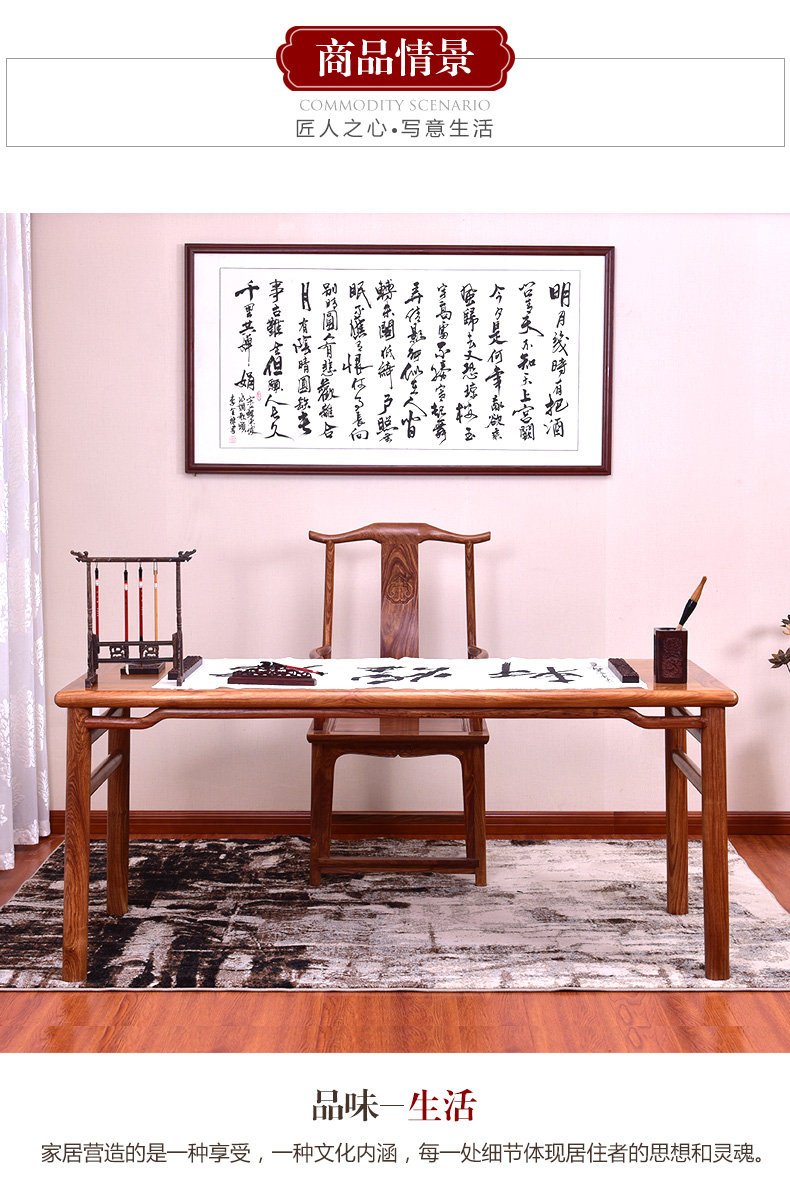 商品情景
COMMODITY SCENARIO
匠人之心•写意生活
明月幾時有把酒
问青天不知天上宫闕
今夕是何年我欲乘
風歸去又恐琼楼玉
宇高處不勝寒起舞
弄清影何似在人间
轉朱閣低綺户照無
眠不應有恨何事長向
别時圓人有悲歡離合
月有陰晴圓缺此
事古難全但願人长久
千里共嬋娟
品味—生活
家居营造的是一种享受，一种文化内涵，每一处细节体现居住者的思想和灵魂。